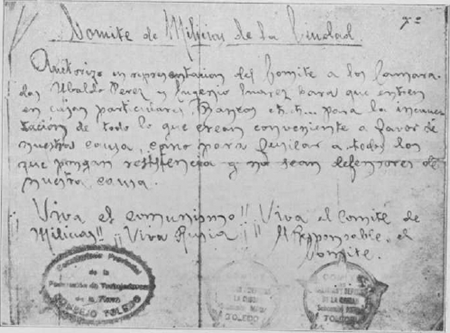 Comité de Milicias de la Ciudad.
Autorizo en representacion del Comite a los Camara
das Ubaldo Perez y Eugenio Suarez para que entren
en cajas particulares, Bancos etc. etc... para la incau
tación de todo lo que crean conveniente a favor de
nuestra causa, como para fusilar a todos los
que pongan resistencia y no sean defensores de
nuestra causa.
¡Viva el comunismo!! Viva el Comité de
Milicias!! ¡¡Viva Rusia!! El Responsable, el
Comite.
Provincial
de la
Federación de Trabajadores
de la Tierra
CONSEJO TOLEDO
DE LA CIUDAD
TOLEDO
COMITE
DE LA CIUDAD
TOLEDO